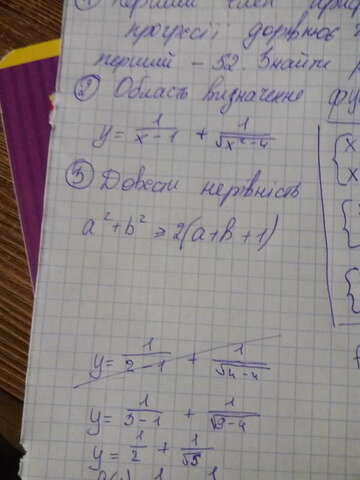 ① Перший член
прогресії дорівнює
перший – 52. Знайти
② Область визначення
y = 1/(x-1) + 1/√(x²-4)
③ Довести нерівність
a² + b² ≥ 2(a+b+1)
y = 1/(2-1) + 1/√(4-4)
y = 1/(3-1) + 1/√(9-4)
y = 1/2 + 1/√5